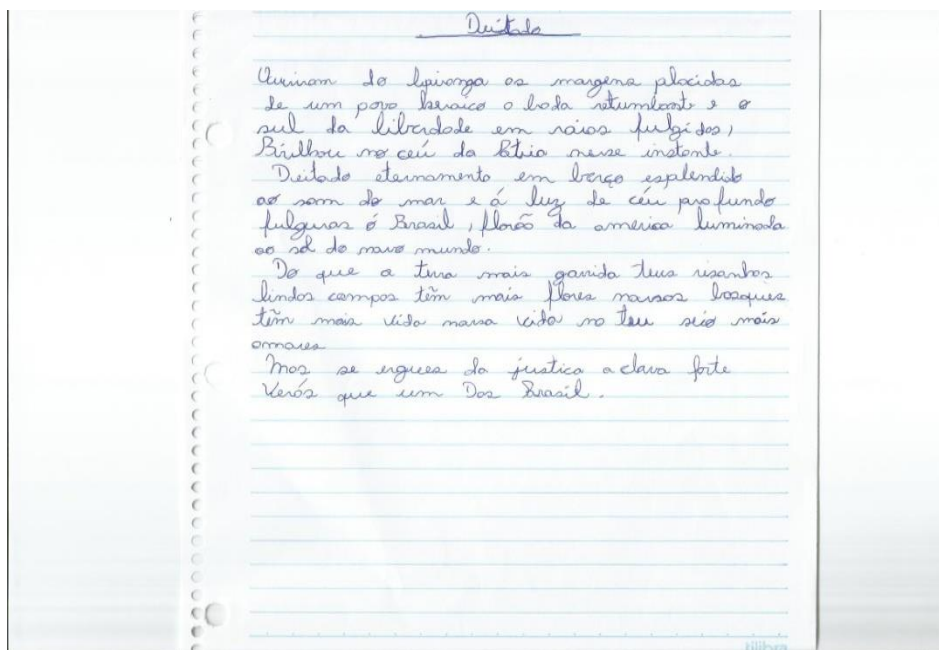 Deitado
Ouviram do Ipiranga os margens placidas
de um povo heroico o brada retumbante e o
sul da liberdade em ráios fulgidos,
Brilhou no ceú da Pátria nesse instante.
Deitado eternamento em berço esplendido
ao som do mar e á luz de céu profundo
fulguras ó Brasil, florão da america luminada
ao sol do novo mundo.
Do que a terra mais garrida teus risonhos
lindos campos têm mais flores nossos bosques
têm mais vida nossa vida no teu seio mais
ommores
Mas se ergues da justica a clava forte
Verós que um Dos Brasil.
tilibra